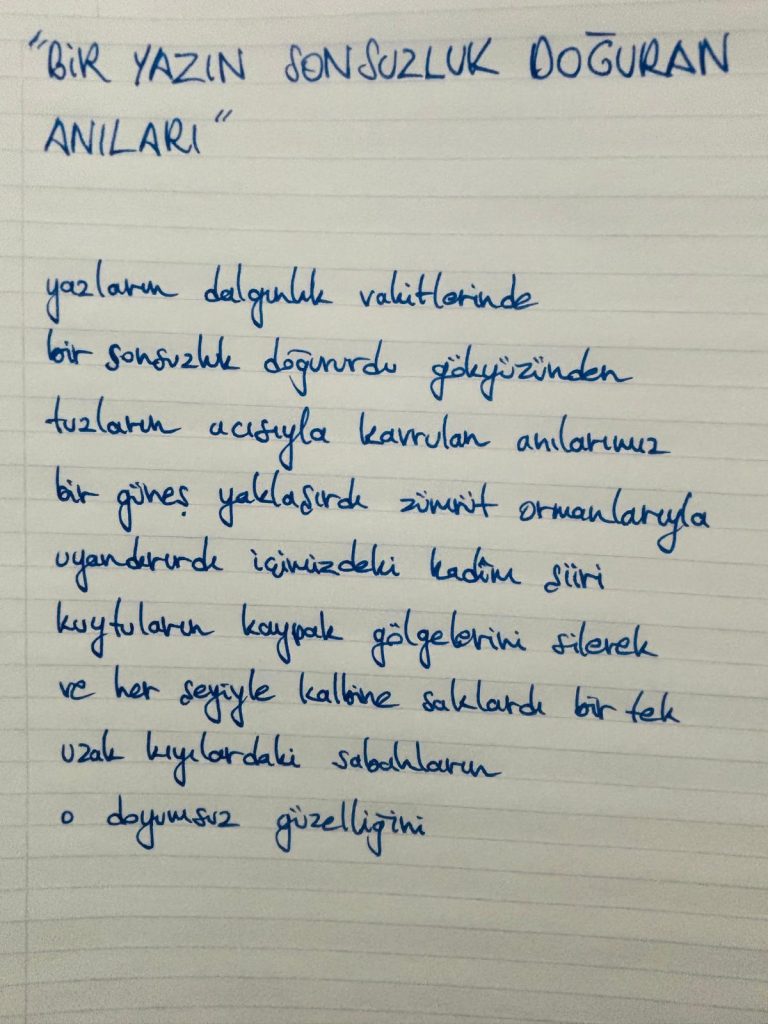 "BİR YAZIN SONSUZLUK DOĞURAN
ANILARI"
yazların dalgınlık vakitlerinde
bir sonsuzluk doğururdu gökyüzünden
tuzların acısıyla kavrulan anılarımız
bir güneş yaklaşırdı zümrüt ormanlarıyla
uyandırırdı içimizdeki kadîm şiiri
kuytuların kaypak gölgelerini silerek
ve her şeyiyle kalbine saklardı bir tek
uzak kıyılardaki sabahların
o doyumsuz güzelliğini